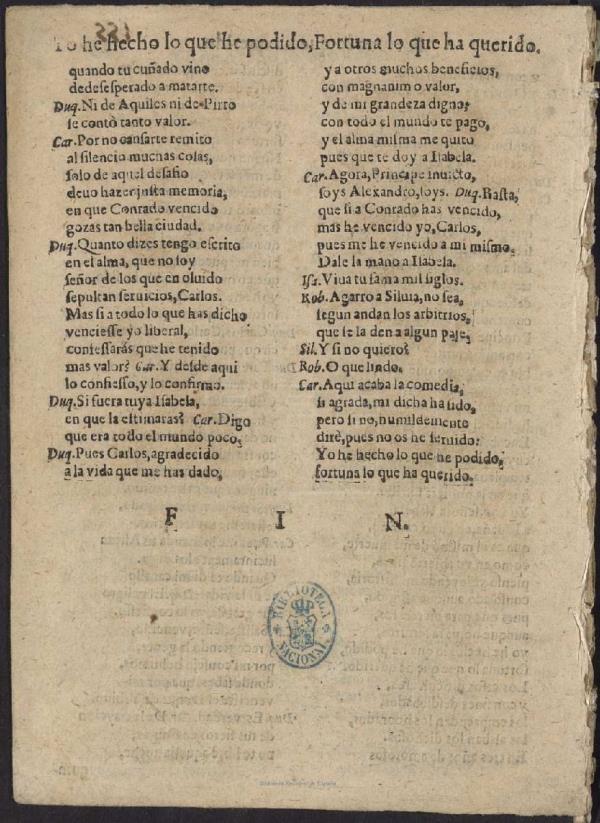 Yo he hecho lo que he podido, Fortuna lo que ha querido.
quando tu cuñado vino
dedesesperado a matarte.
Duq. Ni de Aquiles ni de Pirro
se contò tanto valor.
Car. Por no cansarte remito
al silencio muchas cosas,
solo de aquel desafio
deuo hazer justa memoria,
en que Conrado vencido
gozas tan bella ciudad.
Duq. Quanto dizes tengo escrito
en el alma, que no soy
señor de los que en oluido
sepultan seruicios, Carlos.
Mas si a todo lo que has dicho
venciesse yo liberal,
confessarás que he tenido
mas valor? Car. Y desde aqui
lo confiesso, y lo confirmo.
Duq. Si fuera tuya Isabela,
en que la estimaras? Car. Digo
que era todo el mundo poco,
Duq. Pues Carlos, agradecido
a la vida que me has dado,
y a otros muchos beneficios,
con magnanimo valor,
y de mi grandeza digno,
con todo el mundo te pago,
y el alma misma me quito
pues que te doy a Isabela.
Car. Agora, Principe inuicto,
soys Alexandro, soys. Duq. Basta,
que si a Conrado has vencido,
mas he vencido yo, Carlos,
pues me he vencido a mi mismo.
Dale la mano a Isabela.
Isa. Viua tu fama mil siglos.
Rob. Agarro a Siluia, no sea,
segun andan los arbitrios,
que se la den a algun paje,
Sil. Y si no quiero?
Rob. O que lindo.
Car. Aqui acaba la comedia,
si agrada, mi dicha ha sido,
pero si no, humildemente
diré, pues no os he seruido:
Yo he hecho lo que he podido,
fortuna lo que ha querido.
F I N.
BIBLIOTECA NACIONAL